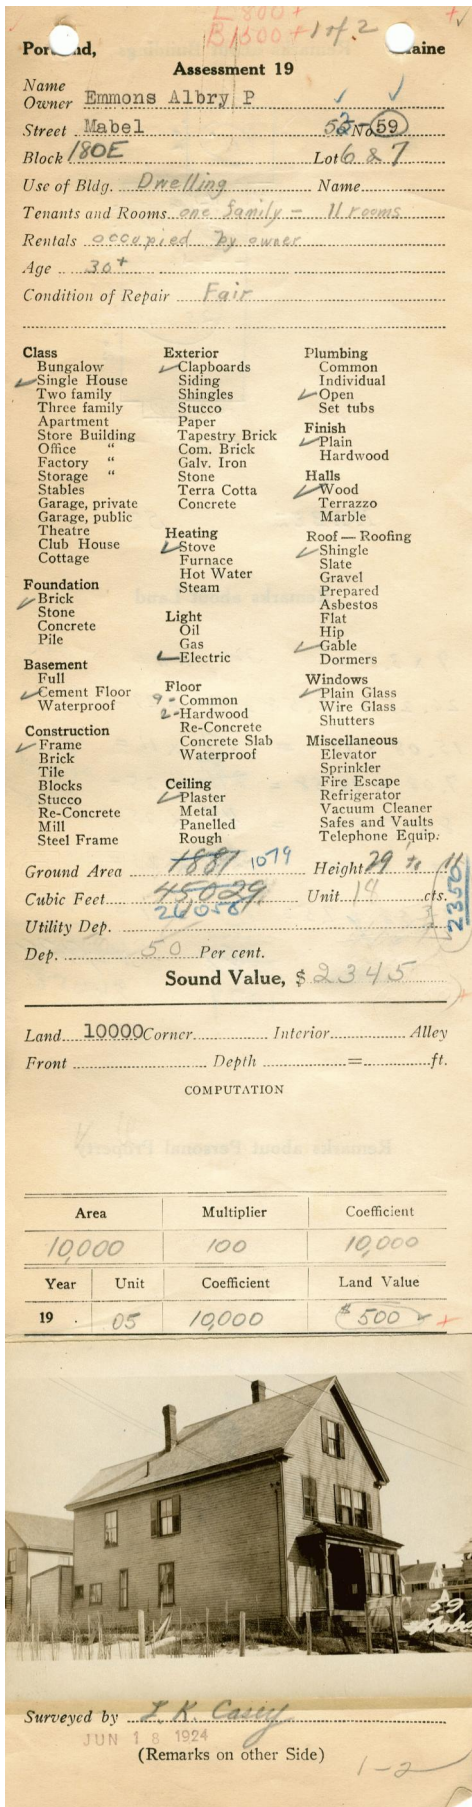 L 800 +
B 1500 + 1 of 2
Portland, Maine
Assessment 19
Name
Owner Emmons Albry P
Street Mabel 53 No 59
Block 180E Lot 6 & 7
Use of Bldg. Dwelling Name
Tenants and Rooms one family - 11 rooms
Rentals occupied by owner
Age 30+
Condition of Repair Fair
Class
Bungalow
✓ Single House
Two family
Three family
Apartment
Store Building
Office "
Factory "
Storage "
Stables
Garage, private
Garage, public
Theatre
Club House
Cottage
Foundation
✓ Brick
Stone
Concrete
Pile
Basement
Full
✓ Cement Floor
Waterproof
Construction
✓ Frame
Brick
Tile
Blocks
Stucco
Re-Concrete
Mill
Steel Frame
Exterior
✓ Clapboards
Siding
Shingles
Stucco
Paper
Tapestry Brick
Com. Brick
Galv. Iron
Stone
Terra Cotta
Concrete
Heating
✓ Stove
Furnace
Hot Water
Steam
Light
Oil
Gas
✓ Electric
Floor
9 - Common
2 - Hardwood
Re-Concrete
Concrete Slab
Waterproof
Ceiling
✓ Plaster
Metal
Panelled
Rough
Plumbing
Common
Individual
✓ Open
Set tubs
Finish
✓ Plain
Hardwood
Halls
✓ Wood
Terrazzo
Marble
Roof — Roofing
✓ Shingle
Slate
Gravel
Prepared
Asbestos
Flat
Hip
✓ Gable
Dormers
Windows
✓ Plain Glass
Wire Glass
Shutters
Miscellaneous
Elevator
Sprinkler
Fire Escape
Refrigerator
Vacuum Cleaner
Safes and Vaults
Telephone Equip.
Ground Area 1887 1079 Height 29 ft.
Cubic Feet 45029 Unit 18 cts.
26058
2350
Utility Dep.
Dep. 50 Per cent.
Sound Value, $ 2345
Land 10000 Corner Interior Alley
Front Depth = ft.
COMPUTATION
Area Multiplier Coefficient
10,000 100 10,000
Year Unit Coefficient Land Value
19 . 05 10,000 $ 500
59
Surveyed by L. K. Casey
JUN 18 1924
(Remarks on other Side)
1-2